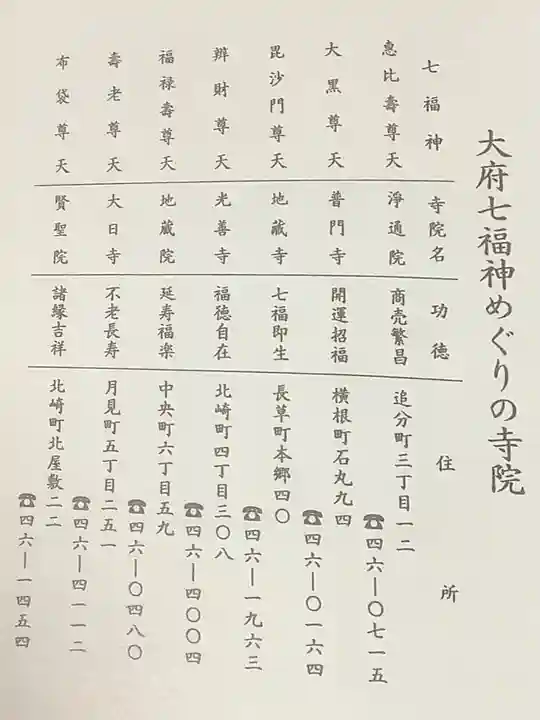 大府七福神めぐりの寺院
七福神 寺院名 功徳 住所
惠比壽尊天 淨通院 商売繁昌 追分町三丁目一二
☎四六―〇七一五
大黒尊天 普門寺 開運招福 横根町石丸九四
☎四六―〇一六四
毘沙門尊天 地蔵寺 七福即生 長草町本郷四〇
☎四六―一九六三
辨財尊天 光善寺 福徳自在 北崎町四丁目三〇八
☎四六―四〇〇四
福禄壽尊天 地蔵院 延寿福楽 中央町六丁目五九
☎四六―〇四八〇
壽老尊天 大日寺 不老長寿 月見町五丁目二五一
☎四六―四一一二
布袋尊天 賢聖院 諸縁吉祥 北崎町北屋敷二二
☎四六―一四五四